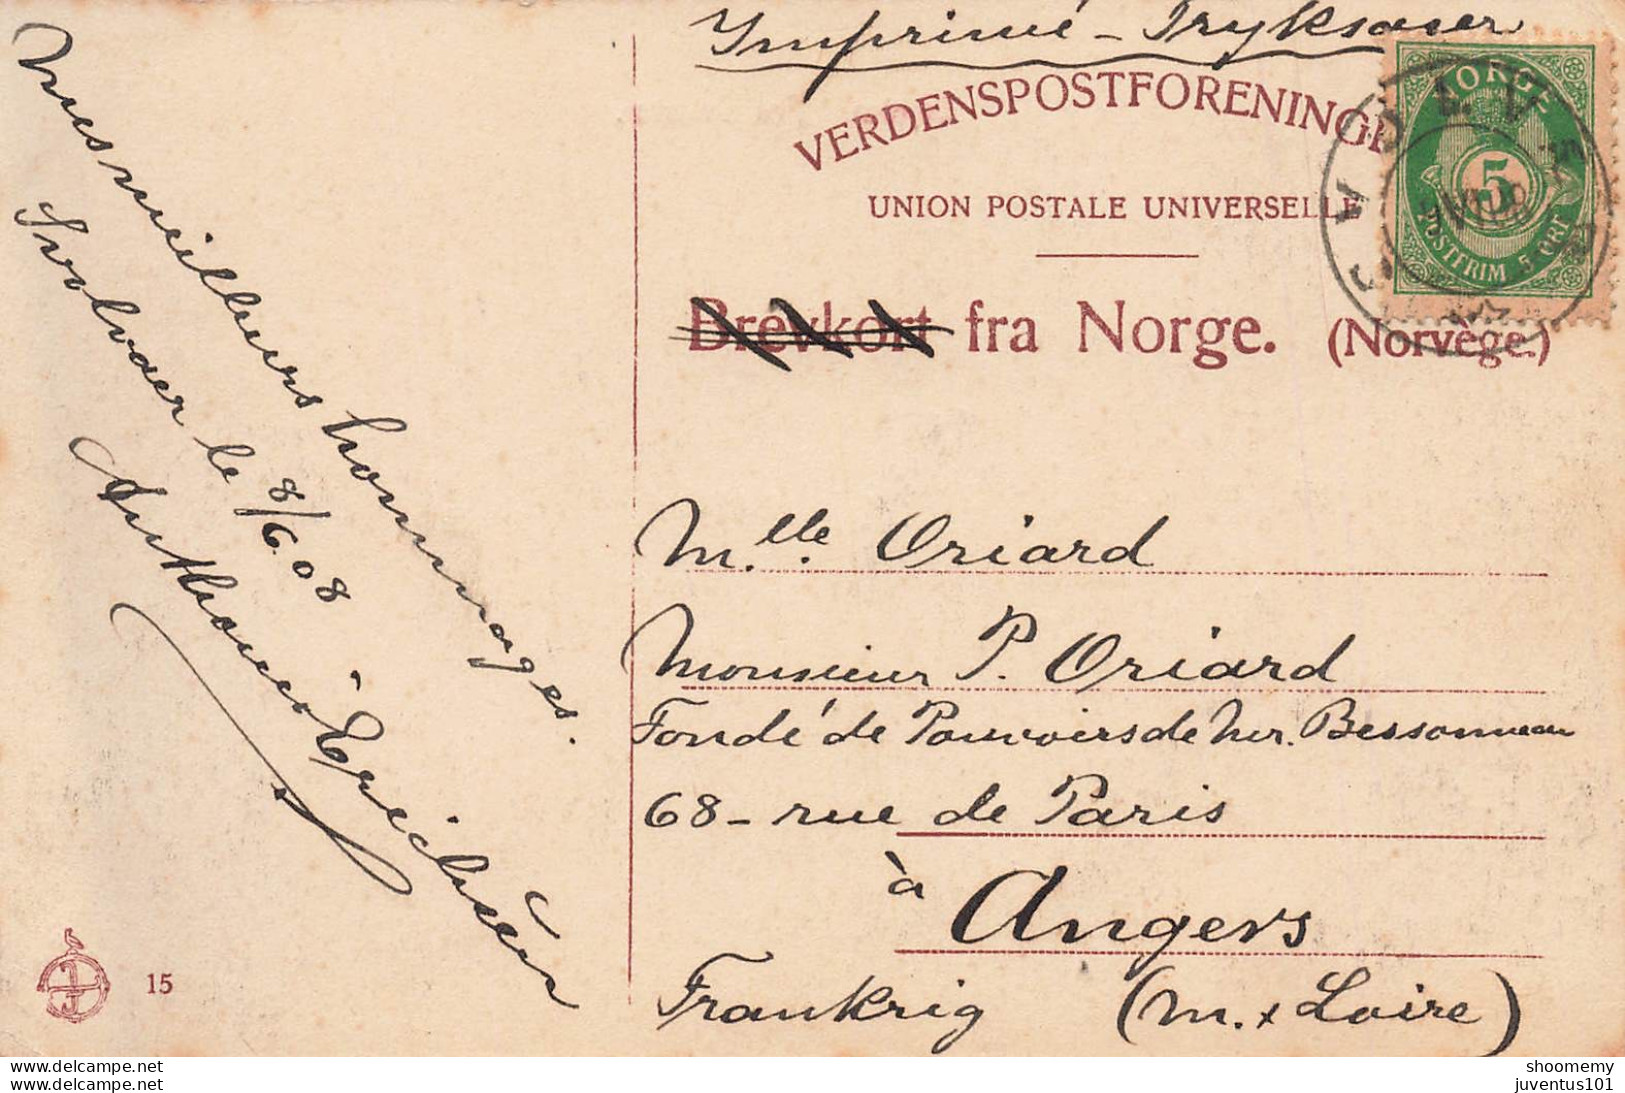 Imprimé - Tryksaker
VERDENSPOSTFORENINGE
UNION POSTALE UNIVERSELLE
Brevkort fra Norge. (Norvège.)
NORGE
5
POSTFRIM 5 ØRE
mes meilleurs hommages.
Svolvaer le 8/6.08
Mlle. Oriard
Monsieur P. Oriard
Fondé de Pouvoirs de Mr. Bessonneau
68 - rue de Paris
à Angers
Frankrig (M. x Loire)
15
shoomemy
juventus101